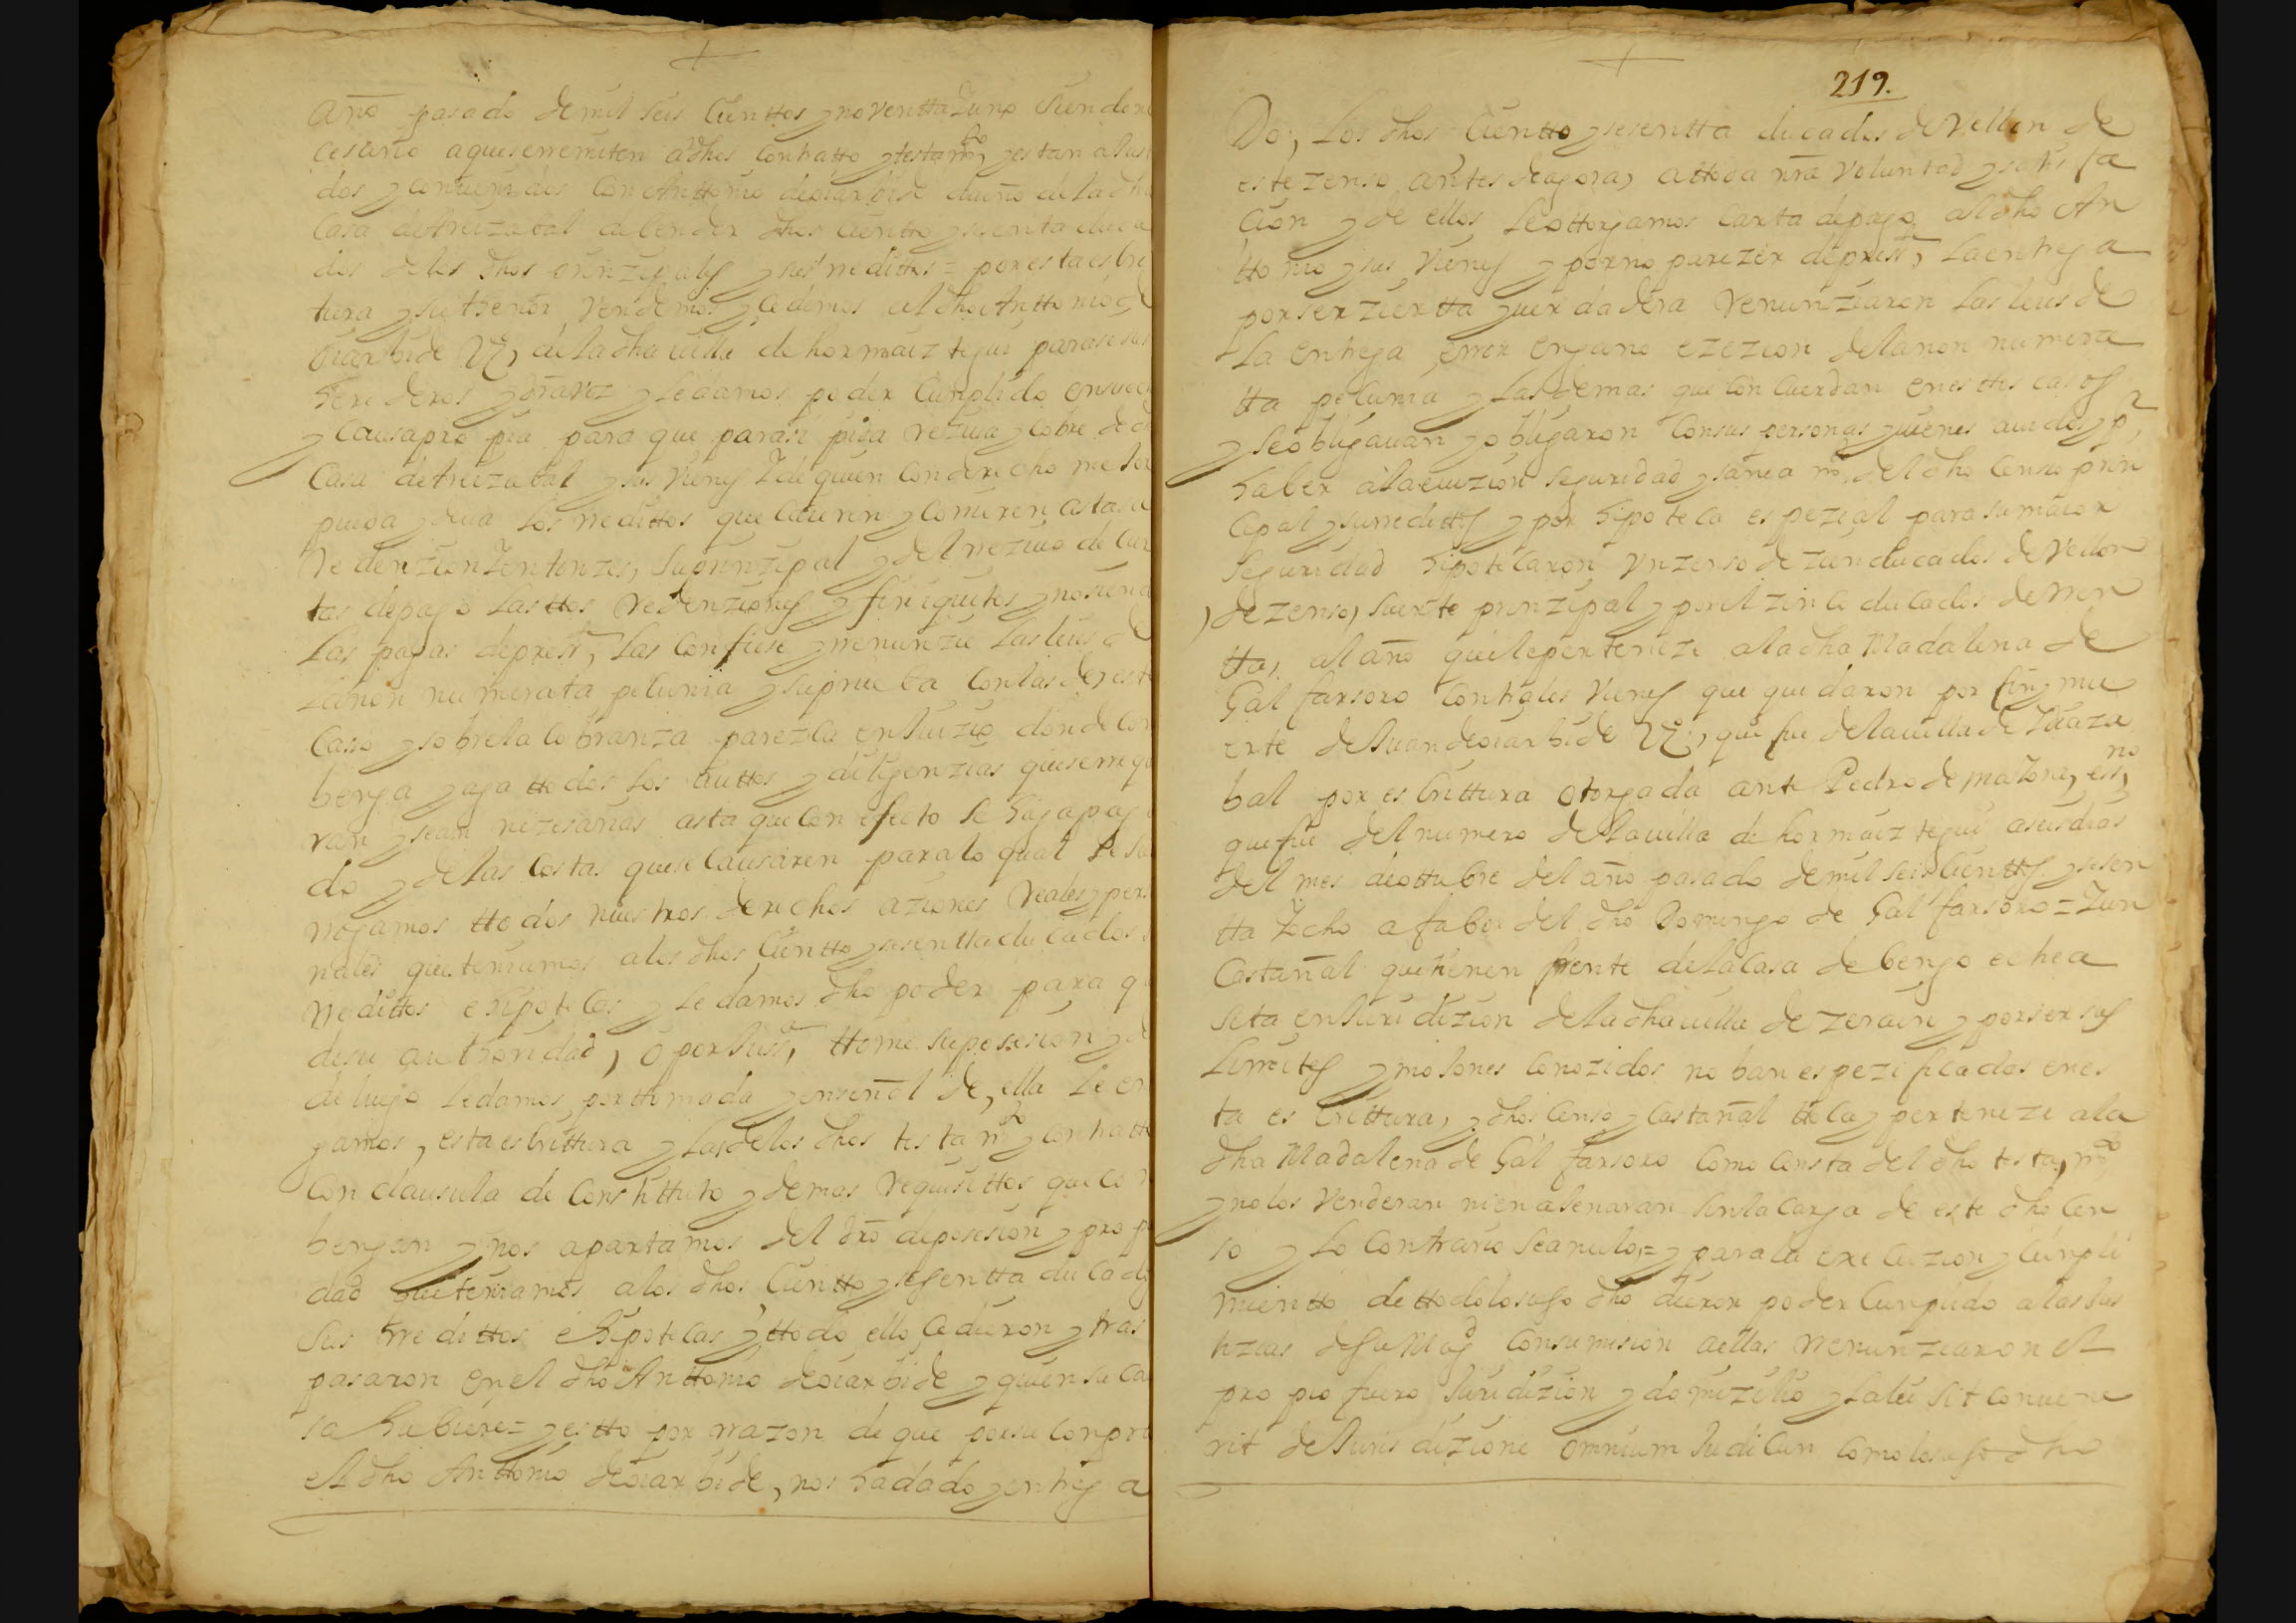 año pasado de mil seis cienttos y noventta y uno siendo ne
cesario a que se rremiten a dhos contratto y testamto, y estan ajust
dos y conuenidos con Anttonio de oiarbide dueño de la dha
Casa de Arrizabal de bender dhos cientto y sesenta duca
dos de los dhos prinzipales y sus rredittos = por esta escri
tura y su thenor vendemos y cedemos al dho Anttonio de
oiarbide Vº, de la dha uilla de hormaiztegui para si sus
herederos y
y causa propia para que para si pida reziua y cobre de dha
Casa de Arrizabal y sus vienes y de quien con derecho mejor
pueda y deua los rredittos que caieren y corrieren asta su
Redenzion y entonzes, su prinzipal y del rreziuo de car
tas de pago lasttos redenziones y finiquitos y no siendo
las pagas de presste, las confiese y rrenunzie las leies de
la non numerata pecunia y su prueba con las de este
Caso y sobre la cobranza parezca en Juizio donde con
benga y aga ttodos los auttos y diligenzias que se rrequie
ran y sean nezesarias asta que con efecto se haga paga
do y de las costas que se causaren para lo qual le su
rrogamos ttodos nuestros derechos aziones Reales y perso
nales que teniamos a los dhos cientto y sesentta ducados
rredittos e ipotecas y le damos dho poder para que
de su authoridad, o por Justa, ttome su posesion y de
de luego le damos por ttomada y en señal de, ella le en
gamos, esta escrittura y las de los dhos testamto y contratto
con clausula de consttituto y demas requisittos que con
bengan y nos apartamos del dro de posesion y propie
dad que teniamos a los dhos cientto y sesentta ducados
sus rredittos e hipotecas y ttodo ello cedieron y tras
pasaron en el dho Anttonio de oiarbide y quien su ca
sa hubiere = y estto por rrazon de que por su conpra
el dho Anttonio de oiarbide, nos ha dado y entrega
219.
Do, Los dhos cientto y sesentta ducados de vellon de
este zenso, antes de agora, a ttoda nra voluntad y satisfa
cion y de ellos le ottorgamos carta de pago al dho An
ttonio y sus vienes y por no parezer de pressте, la entrega
por ser zierta y uerdadera renunziaron las leies de
la entrega error engano ezezion de la non numera
tta pecunia y las demas que concuerdan en esttos casos
y se obligauan y obligaron con sus personas y uienes auidos y pr
haber a la euizion seguridad y saneamto, del dho censo prin
cipal y su rredittos y por hipoteca espezial para su maior
seguridad hipotecaron vn zenso de zien ducados de vellon
de zenso, suerte prinzipal y por el zinco ducados de rren
tta, al año que le perteneze a la dha Madalena de
Galfarsoro contra los vienes que quedaron por fin y mu
erte de Juan de oiarbide Vº, que fue de la uilla de Ydiaza
bal por escrittura otorgada ante Pedro de maZone, essno,
que fue del numero de la uilla de hormaiztegui a seis dias
del mes de ottubre del año pasado de mil seis cienttos y sesen
tta y ocho a fabor del dho Domingo de Galfarsoro = Y un
Castañal que tienen frente de la Casa de bengo echea
seta en Juridizion de la dha uilla de zerain y por ser sus
limites y mojones conozidos no ban espezificados en es
ta escrittura, y dhos censo y castañal le toca y perteneze a la
dha Madalena de Galfarsoro como consta del dho testamto
y no los venderan ni enajenaran sin la carga de este dho cen
so y lo contrario sea nulo = y para la execuzion y cunpli
mientto de ttodo lo suso dho dieron poder cunplido a las Jus
tizias de su Magd con sumision a ellas rrenunziaron el
propio fuero Juridizion y domizilio y la lei sit conuene
rit de Jurisdizione omnium Judicun como lo suso dho